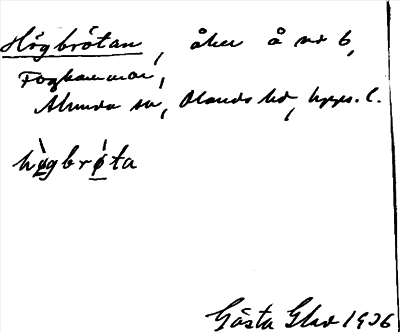 Högbrötan, åker å nr 6,
Foghammar,
Alunda sn, Olands hd, Upps. l.
hø̀gbrǿta
Gösta Glad 1936